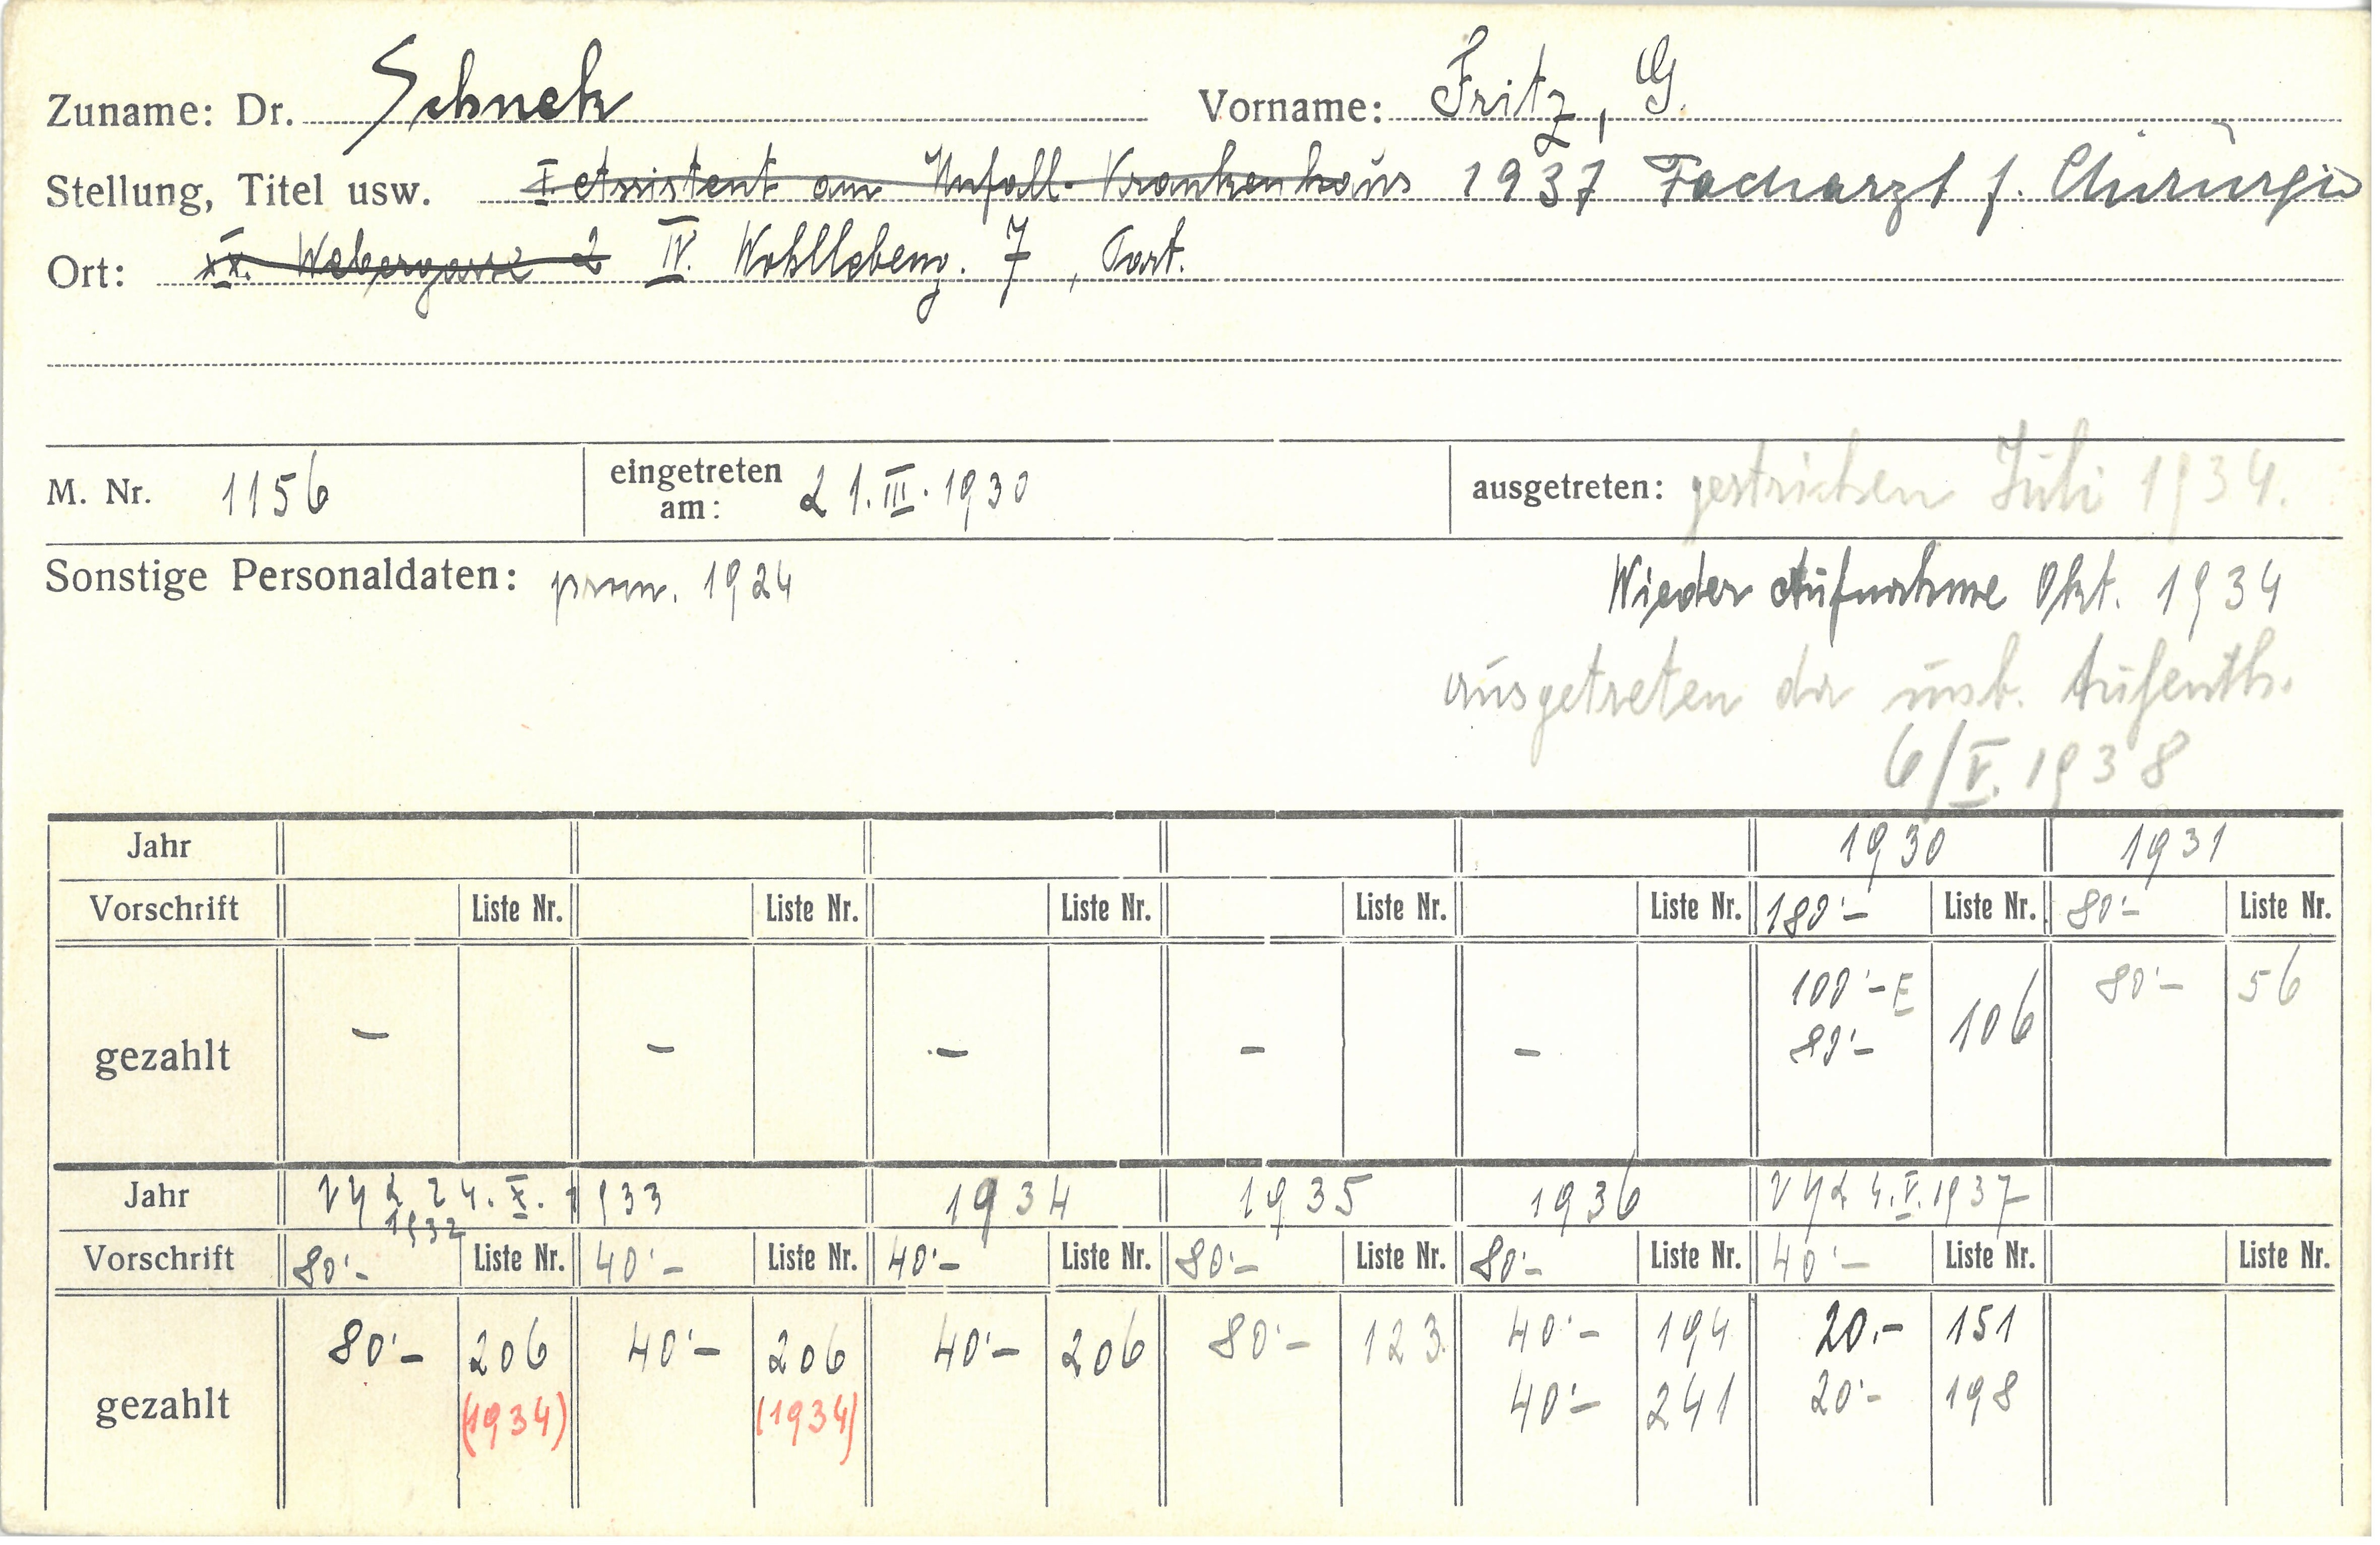 Zuname: Dr. Schnek Vorname: Fritz, G.
Stellung, Titel usw. I. Assistent am Unfall-Krankenhaus 1937 Facharzt f. Chirurgie
Ort: XX. Webergasse 2 IV. Wohllebeng. 7, Part.
M. Nr. 1156 eingetreten am: 21.III.1930 ausgetreten: gestrichen Juli 1934.
Sonstige Personaldaten: prom. 1924 Wieder Aufnahme Okt. 1934
ausgetreten da unb. Aufenth.
6/V. 1938
Jahr 1930 1931
Vorschrift Liste Nr. Liste Nr. Liste Nr. Liste Nr. Liste Nr. 180'– Liste Nr. 80'– Liste Nr.
100'– E 80'– 56
gezahlt – – – – – 80'– 106
Jahr 24.X. 1933 1934 1935 1936 4.V.1937
1932
Vorschrift 80'– Liste Nr. 40'– Liste Nr. 40'– Liste Nr. 80'– Liste Nr. 80'– Liste Nr. 40'– Liste Nr. Liste Nr.
80'– 206 40'– 206 40'– 206 80'– 123. 40'– 194 20.– 151
gezahlt (1934) (1934) 40'– 241 20'– 198